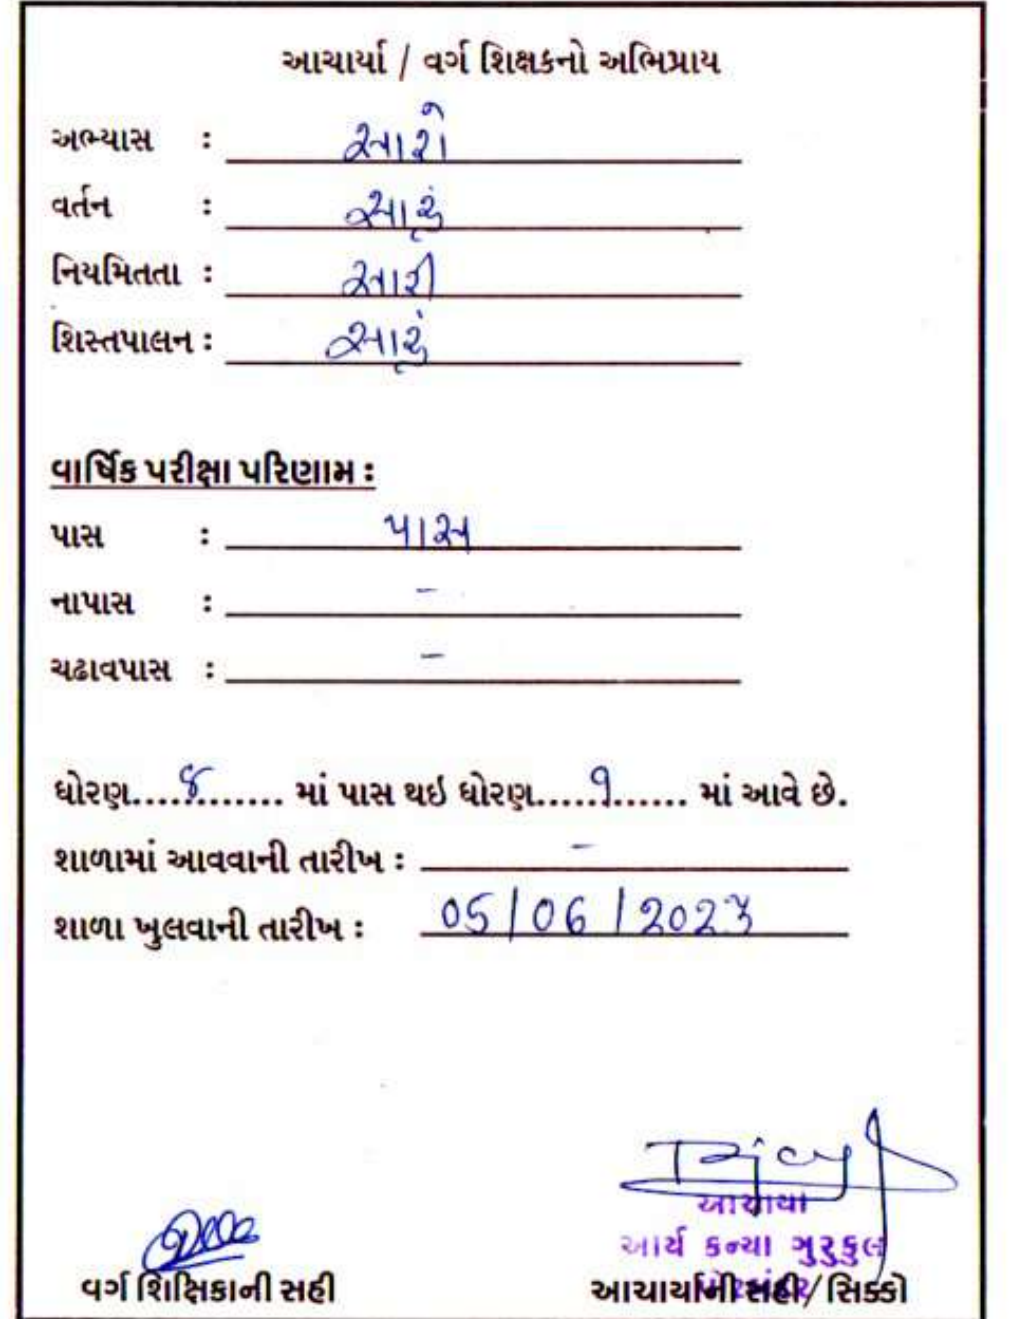 આચાર્યા / વર્ગ શિક્ષકનો અભિપ્રાય
અભ્યાસ : સારો
વર્તન : સારું
નિયમિતતા : સારી
શિસ્તપાલન : સારું
વાર્ષિક પરીક્ષા પરિણામ :
પાસ : પાસ
નાપાસ : -
ચઢાવપાસ : -
ધોરણ....૮....... માં પાસ થઇ ધોરણ.....૯...... માં આવે છે.
શાળામાં આવવાની તારીખ : -
શાળા ખુલવાની તારીખ : 05/06/2023
આચાર્યા
આર્ય કન્યા ગુરુકુલ
પોરબંદર
વર્ગ શિક્ષિકાની સહી
આચાર્યાની સહી/ સિક્કો